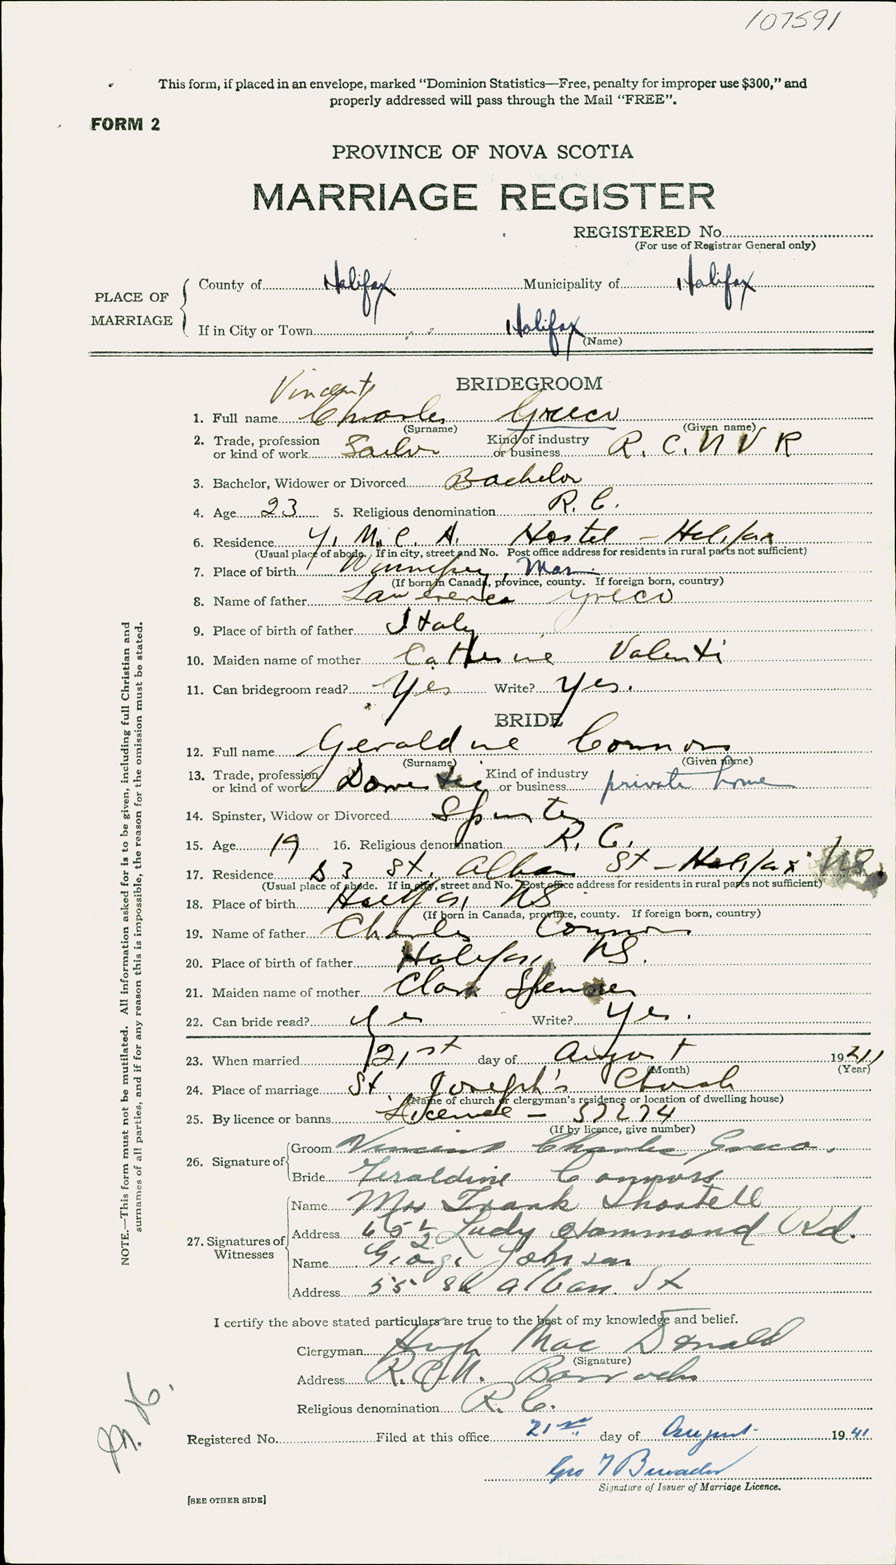 107591
This form, if placed in an envelope, marked “Dominion Statistics—Free, penalty for improper use $300,” and
properly addressed will pass through the Mail “FREE”.
FORM 2
PROVINCE OF NOVA SCOTIA
MARRIAGE REGISTER
REGISTERED No.
(For use of Registrar General only)
PLACE OF MARRIAGE
County of Halifax Municipality of Halifax
If in City or Town Halifax
(Name)
BRIDEGROOM
Vincent
1. Full name Charles Greco
(Surname) (Given name)
2. Trade, profession or kind of work Sailor Kind of industry or business R. C. N V R
3. Bachelor, Widower or Divorced Bachelor
4. Age 23 5. Religious denomination R. C.
6. Residence Y. M. C. A. Hostel - Halifax
(Usual place of abode. If in city, street and No. Post office address for residents in rural parts not sufficient)
7. Place of birth Winnipeg, Man
(If born in Canada, province, county. If foreign born, country)
8. Name of father Lawrence Greco
9. Place of birth of father Italy
10. Maiden name of mother Catherine Valenti
11. Can bridegroom read? Yes Write? Yes.
BRIDE
12. Full name Geraldine Connors
(Surname) (Given name)
13. Trade, profession or kind of work Domestic Kind of industry or business private home
14. Spinster, Widow or Divorced Spinster
15. Age 19 16. Religious denomination R. C.
17. Residence 53 St. Alban St - Halifax NS.
(Usual place of abode. If in city, street and No. Post office address for residents in rural parts not sufficient)
18. Place of birth Halifax, NS
(If born in Canada, province, county. If foreign born, country)
19. Name of father Charles Connors
20. Place of birth of father Halifax, NS.
21. Maiden name of mother Clara Spencer
22. Can bride read? Yes Write? Yes.
23. When married 21st day of August 1941
(Month) (Year)
24. Place of marriage St Joseph's Church
(Name of church or clergyman's residence or location of dwelling house)
25. By licence or banns License - 57274
(If by licence, give number)
26. Signature of
Groom Vincent Charles Greco.
Bride Geraldine Connors
27. Signatures of Witnesses
Name Mrs Frank
Address 65½ Lady Hammond Rd.
Name
Address 55 St Alban St
I certify the above stated particulars are true to the best of my knowledge and belief.
Clergyman Hugh Mac Donald
(Signature)
Address R.C.N. Barracks
Religious denomination R. C.
Registered No. Filed at this office 21st day of August 1941
Geo
Signature of Issuer of Marriage Licence.
[SEE OTHER SIDE]
NOTE.—This form must not be mutilated. All information asked for is to be given, including full Christian and
surnames of all parties, and if for any reason this is impossible, the reason for the omission must be stated.